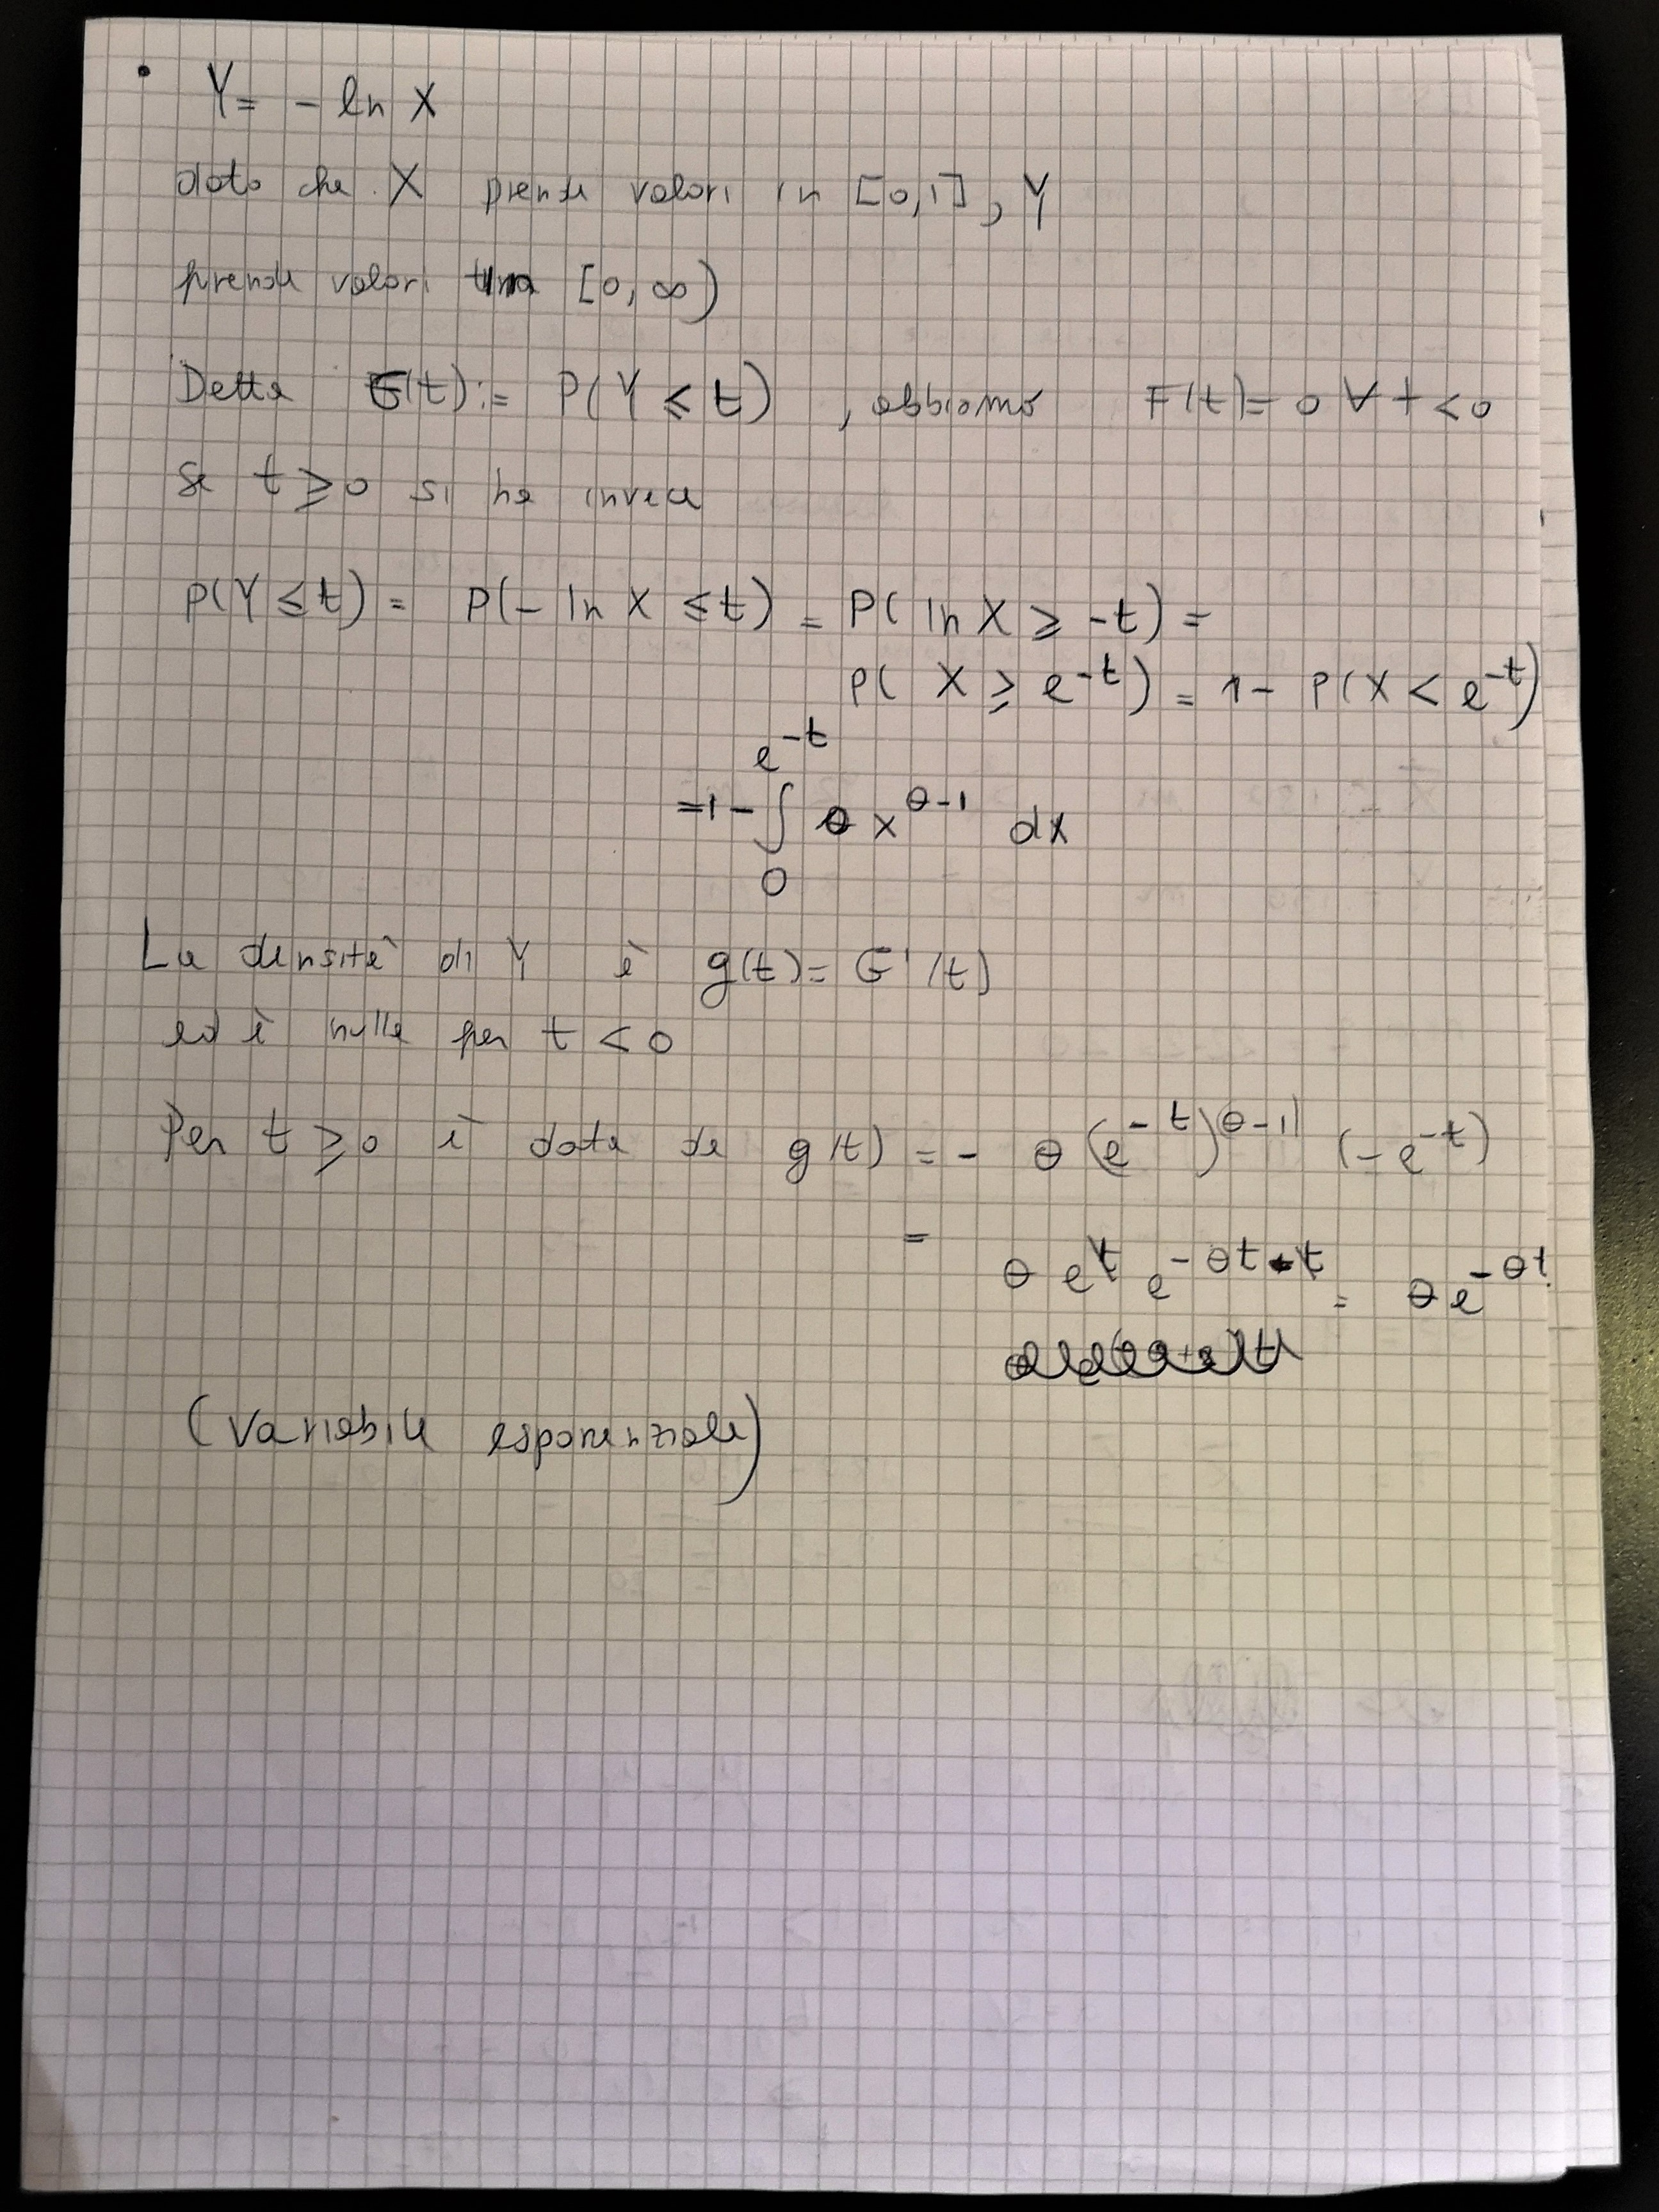 • Y = - ln X
dato che X prende valori in [0,1], Y
prende valori in [0, ∞)
Detta G(t) := P(Y ≤ t), abbiamo F(t) = 0 ∀ t < 0
se t ≥ 0 si ha invece
P(Y ≤ t) = P(- ln X ≤ t) = P( ln X ≥ -t) =
P( X ≥ e^{-t}) = 1 - P(X < e^{-t})
= 1 - ∫_0^{e^{-t}} θ x^{θ-1} dx
La densità di Y è g(t) = G'(t)
ed è nulla per t < 0
Per t ≥ 0 è data da g(t) = - θ (e^{-t})^{θ-1} (-e^{-t})
= θ e^{t} e^{-θt-t} = θ e^{-θt}
(variabile esponenziale)